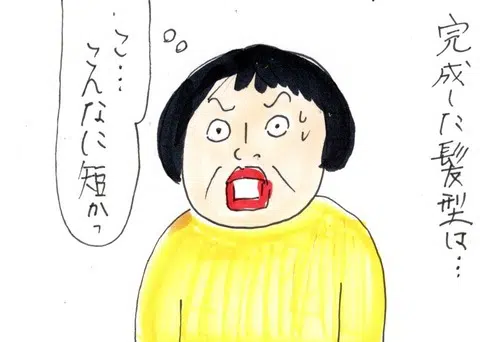 完成した髪型は…
こ…
こんなに短かっ